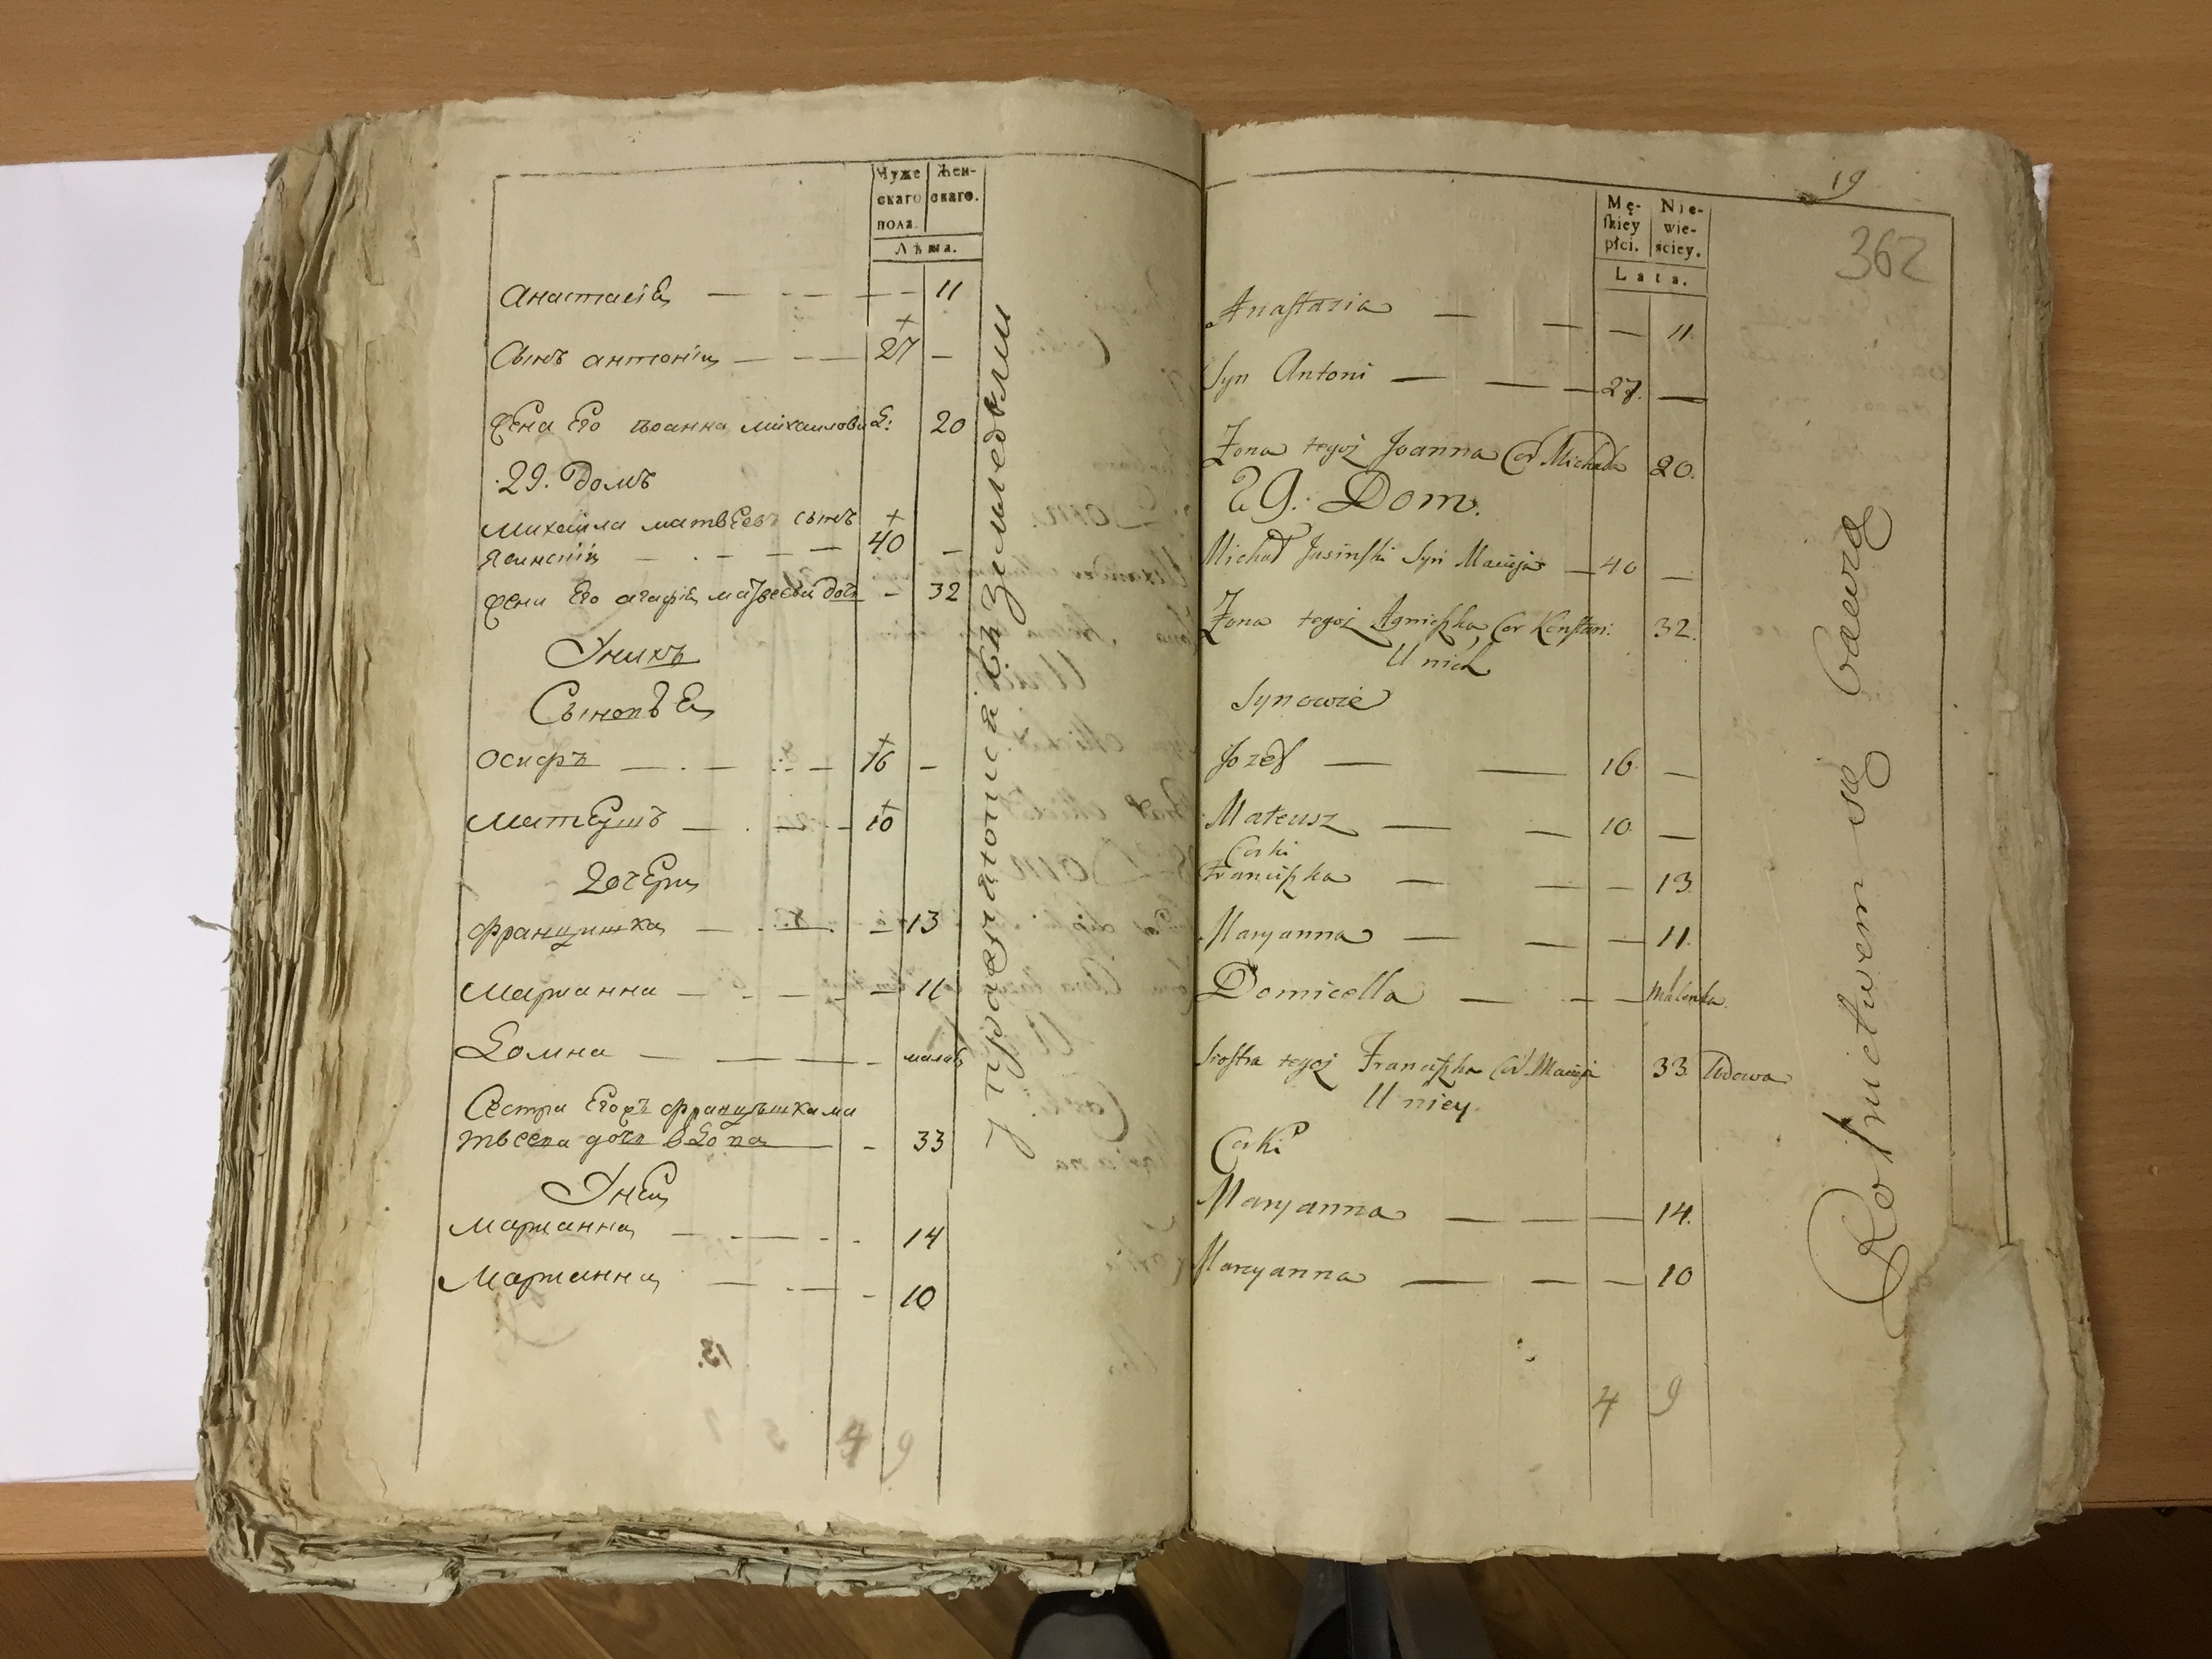 Муже
скаго
пола.
Жен-
скаго.
Лѣта.
Анастасіѧ — — — — 11
Сынъ антоніи — — — 27 —
Жена Его іоанна михаилова Д: 20
29. Домъ
Михаила матвѣевъ сынъ
Ясинскій — — — 40 —
Жена Его агафіѧ матвеева дочь — 32
У нихъ
Сыновѣѧ
осифъ — — — 16 —
матеушъ — — — 10
Дочери
францишка — — — 13
Марианна — — — — 11
Домна — — — — малаѧ
Сестра Егожъ францишка ма
твеева дочь вдова — 33
У неи
Марианна — — — 14
Марианна — — — 10
13.
4 9
упражнѧются въ земледѣлии
19
362
Mę-
skiey
płci.
Nie-
wie-
ściey.
Lata.
Anastazia — — — 11
Syn Antoni — — — 27. —
Żona tegoż Joanna Cor Michała 20.
29. Dom.
Michał Jasinski Syn Macieja — 40 —
Żona tegoż Agnieszka Cor Konstan: 32.
U nich
Synowie
Jozef — — 16 —
Mateusz — — 10 —
Corki
Franciszka — — — 13
Maryanna — — — 11.
Domicella — — — Malenka
Siostra tegoż Franciszka Cor Macieja 33 Wdowa
U niey
Corki
Maryanna — — — 14.
Maryanna — — — 10
4 9
Rolnictwem się bawią